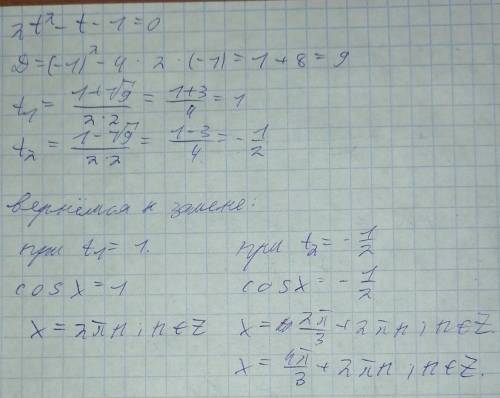 2t² - t - 1 = 0
D = (-1)² - 4 · 2 · (-1) = 1 + 8 = 9
t₁ = (1+√9)/(2·2) = (1+3)/4 = 1
t₂ = (1-√9)/(2·2) = (1-3)/4 = -1/2
вернёмся к замене:
при t₁ = 1.
cos x = 1
x = 2πn, n∈Z
при t₂ = -1/2
cos x = -1/2
x = 2π/3 + 2πn, n∈Z.
x = 4π/3 + 2πn, n∈Z.